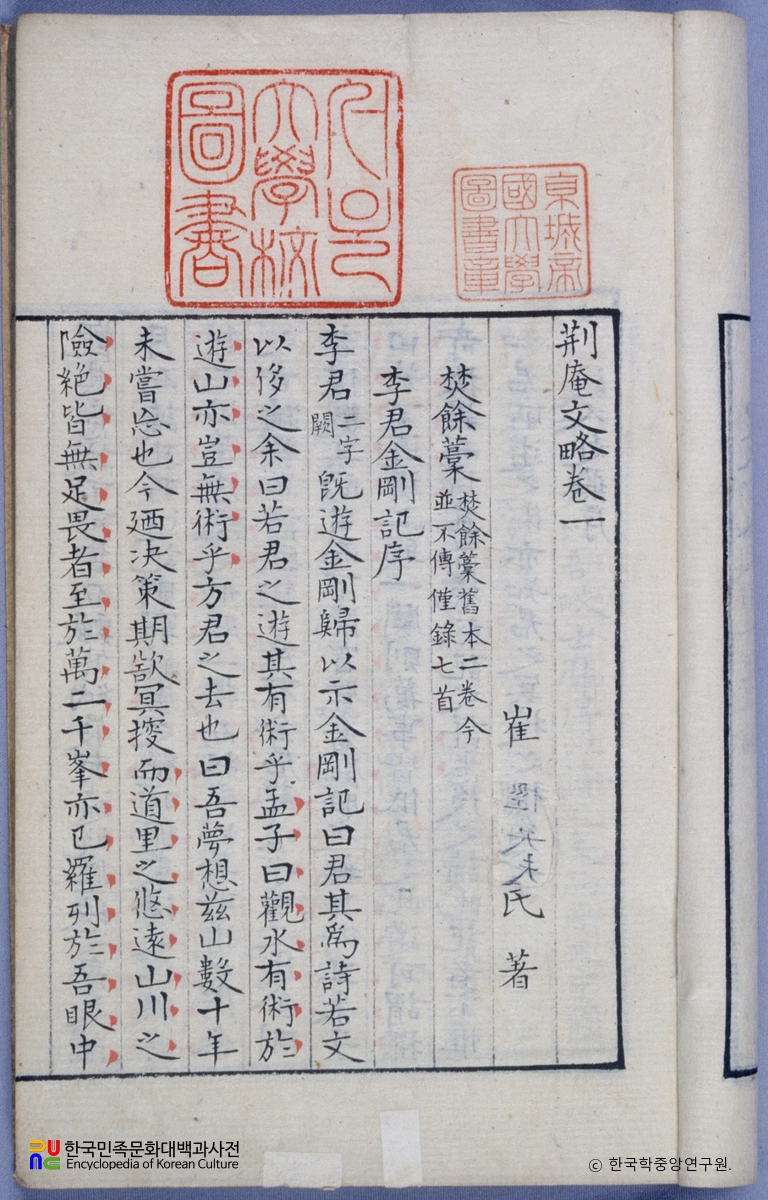 서울大學校圖書
京城帝國大學圖書章
荆庵文略卷一
崔 氏 著
焚餘藁 焚餘藁舊本二卷今
並不傳僅錄七首
李君金剛記序
李君二字闕旣遊金剛歸以示金剛記曰君其爲詩若文
以侈之余曰若君之遊其有術乎孟子曰觀水有術於
遊山亦豈無術乎方君之去也曰吾夢想玆山數十年
未嘗忘也今廼决策期欲冥搜而道里之悠遠山川之
險絶皆無足畏者至於萬二千峯亦已羅列於吾眼中
한국민족문화대백과사전
Encyclopedia of Korean Culture
© 한국학중앙연구원.